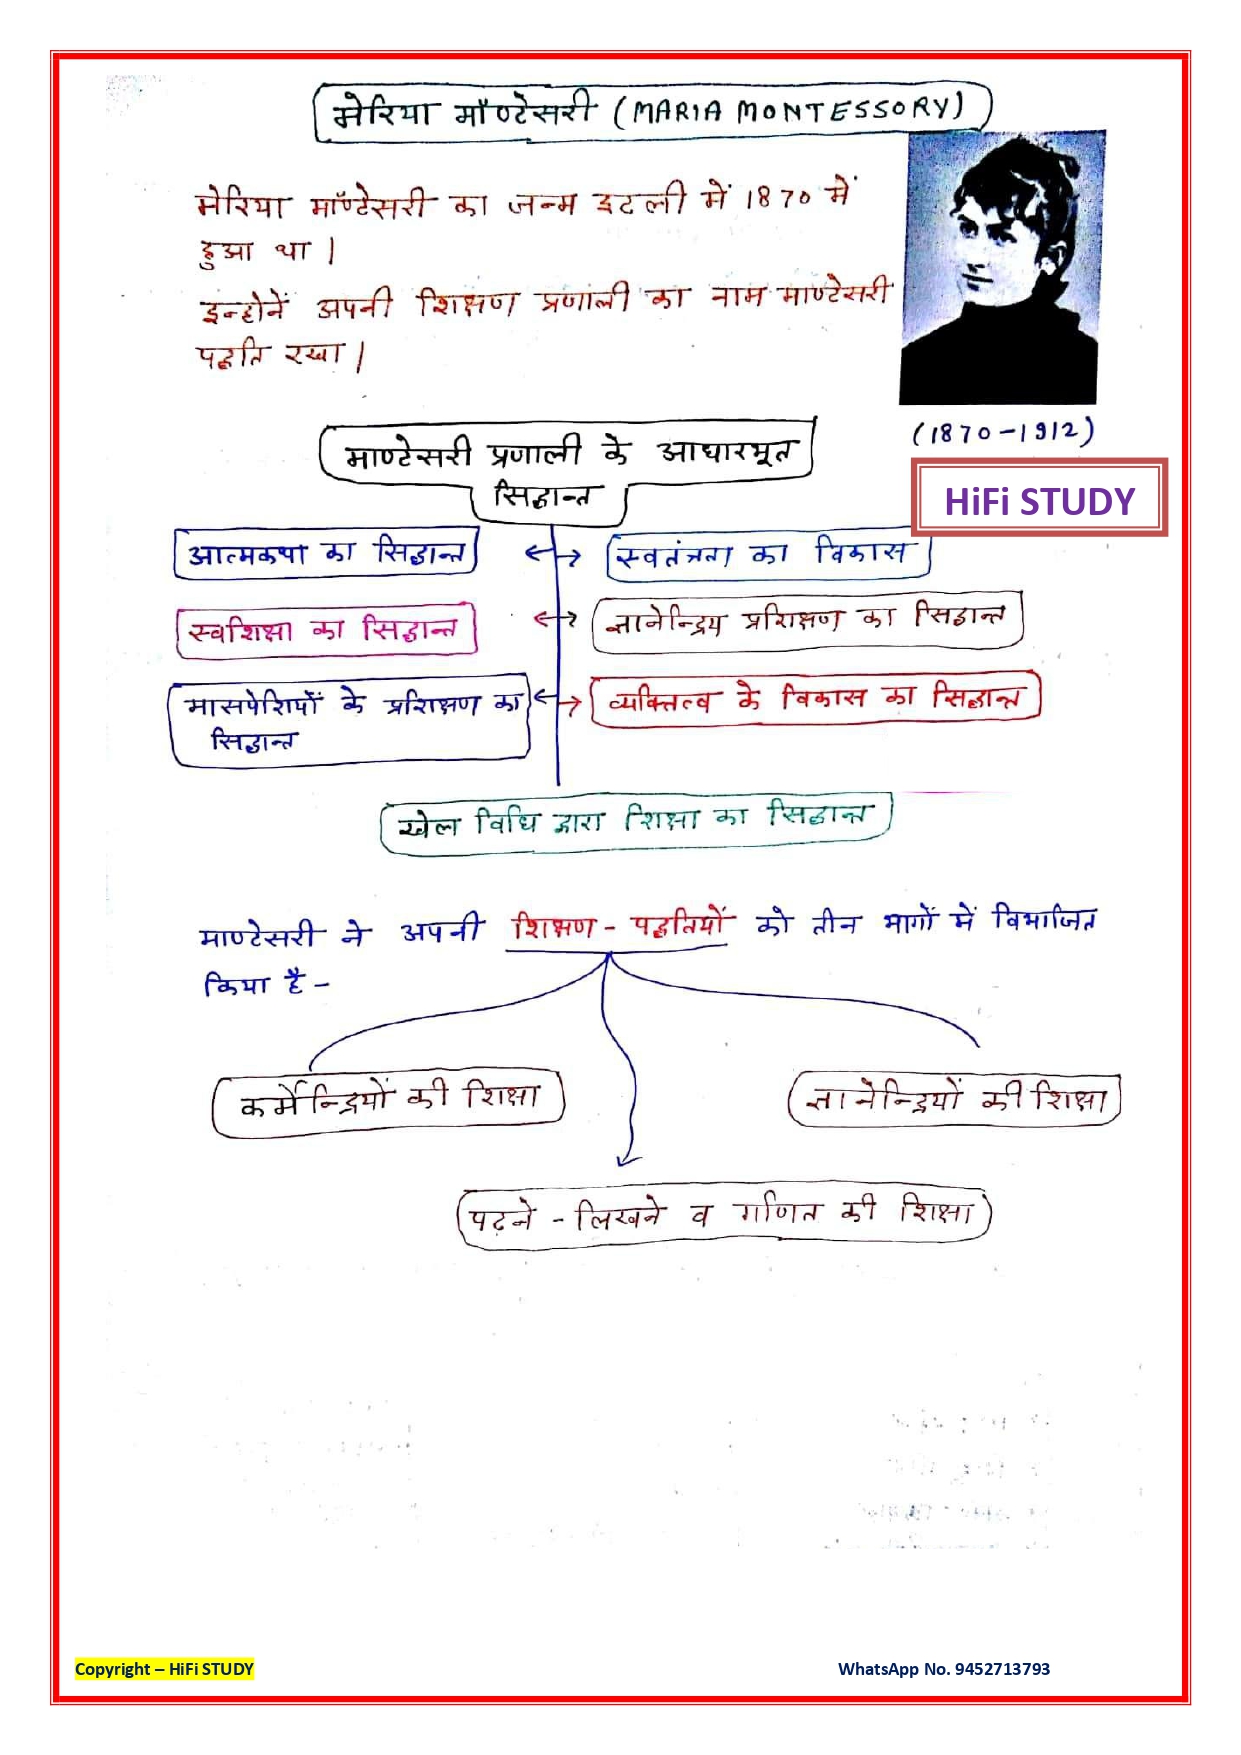 मेरिया मॉण्टेसरी (MARIA MONTESSORY)
मेरिया मॉण्टेसरी का जन्म इटली में 1870 में
हुआ था |
इन्होनें अपनी शिक्षण प्रणाली का नाम माण्टेसरी
पद्धति रखा |
(1870-1912)
माण्टेसरी प्रणाली के आधारभूत
सिद्धान्त
HiFi STUDY
आत्मकथा का सिद्धान्त
स्वतंत्रता का विकास
स्वशिक्षा का सिद्धान्त
ज्ञानेन्द्रिय प्रशिक्षण का सिद्धान्त
मासपेशियों के प्रशिक्षण का
सिद्धान्त
व्यक्तित्व के विकास का सिद्धान्त
खेल विधि द्वारा शिक्षा का सिद्धान्त
माण्टेसरी ने अपनी शिक्षण - पद्धतियों को तीन भागों में विभाजित
किया है -
कर्मेन्द्रियों की शिक्षा
ज्ञानेन्द्रियों की शिक्षा
पढ़ने - लिखने व गणित की शिक्षा
Copyright – HiFi STUDY
WhatsApp No. 9452713793